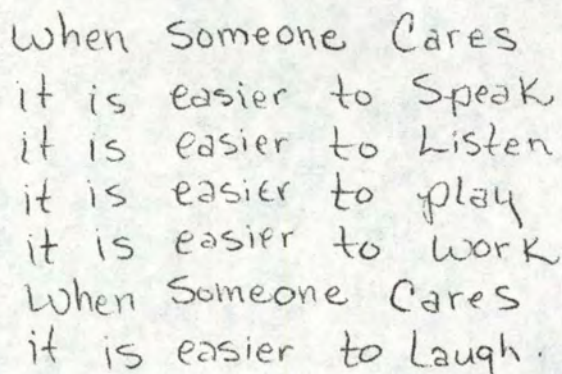 When Someone Cares
it is easier to Speak
it is easier to Listen
it is easier to play
it is easier to work
When Someone Cares
it is easier to Laugh.